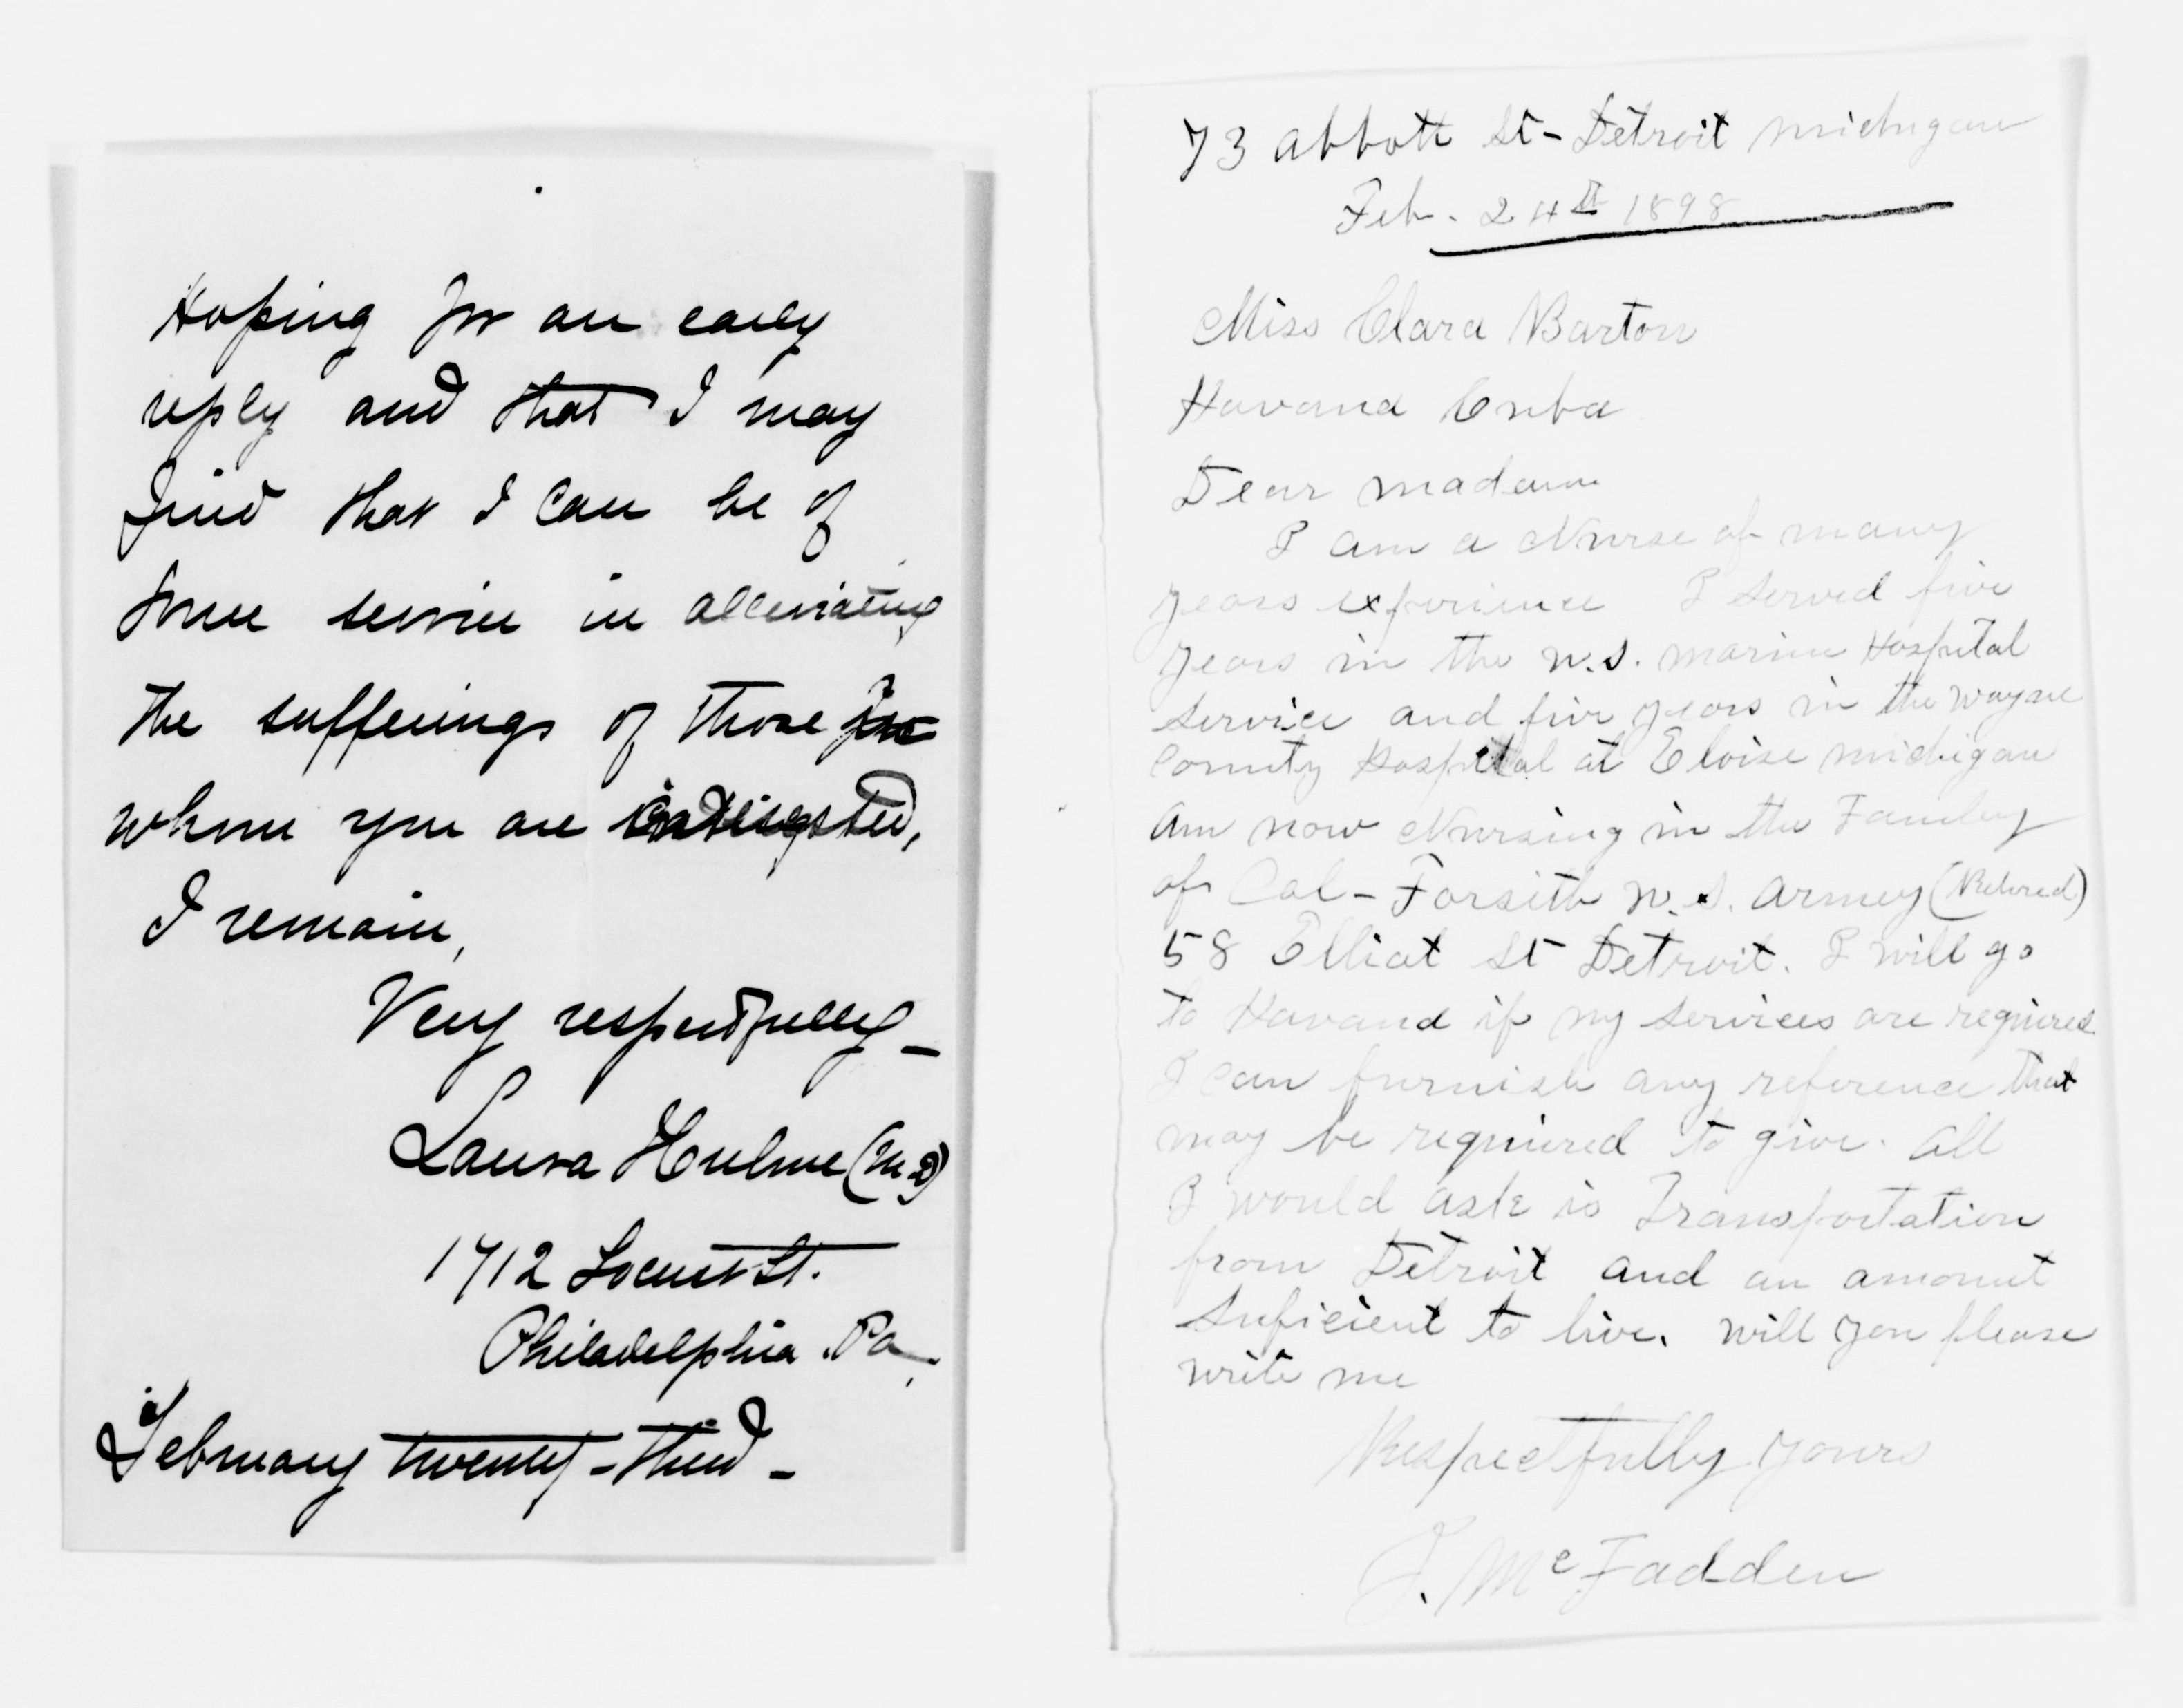 Hoping for an early
reply and that I may
find that I can be of
some service in alleviating
the sufferings of those in
whom you are interested,
I remain,
Very respectfully -
Laura Hulme (M.D)
1712 Locust St.
Philadelphia. Pa.
February twenty-third -
73 Abbott St - Detroit Michigan
Feb. 24th 1898
Miss Clara Barton
Havana Cuba
Dear Madam
I am a Nurse of many
years experience I served five
years in the U.S. Marine Hospital
Service and five years in the Wayne
County Hospital at Eloise Michigan
Am now Nursing in the Family
of Col - Forsith U.S. Army (Retired)
58 Elliat St Detroit. I will go
to Havana if my services are required
I can furnish any reference that
may be required to give. All
I would ask is Transportation
from Detroit and an amount
Suficient to live. Will you please
write me
Respectfully Yours
J. McFadden